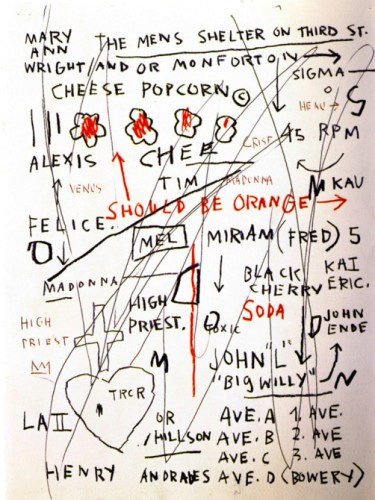 MARY
ANN
THE MENS SHELTER ON THIRD ST.
WRIGHT/AND OR MONFORTOIN
SIGMA
CHEESE POPCORN ©
O
S
45 RPM
CRISP
ALEXIS
CHEE
TIM
MADONNA
VENUS
M KAU
SHOULD BE ORANGE
FELICE.
MEL
MIRIAM (FRED) 5
O
MADONNA
BLACK
CHERRY
KAI
ERIC.
HIGH
PRIEST.
TOXIC
SODA
JOHN
ENDE
D
HIGH
PRIEST
M
M
JOHN "L"
"BIG WILLY"
N
TRCR
LA II
OR
AVE. A
1. AVE.
/HILLSON
AVE. B
2. AVE
AVE. C
3. AVE
HENRY
AVE. D (BOWERY)